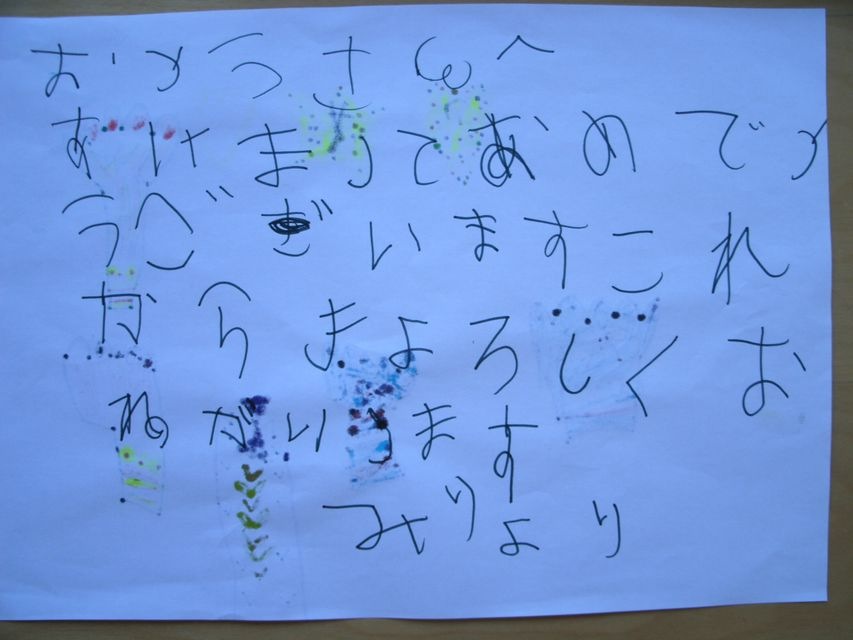 おとうさんへ
あけましておめでと
うございますこれ
からもよろしくお
ねがいします
みりより